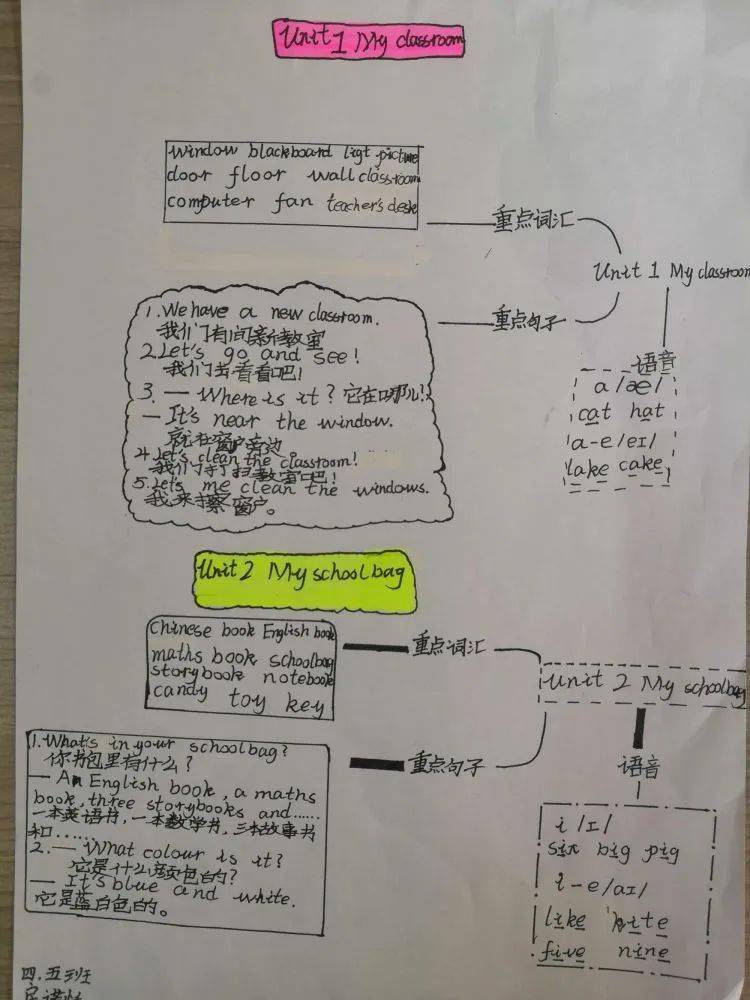 Unit 1 My classroom
window blackboard ligt picture
door floor wall classroom
computer fan teacher's desk
重点词汇
Unit 1 My classroom
1. We have a new classroom.
我们有间新教室
2. Let's go and see!
我们去看看吧!
3. — Where is it? 它在哪儿?
— It's near the window.
就在窗户旁边
4. Let's clean the classroom!
我们打扫教室吧!
5. Let's me clean the windows.
我来擦窗户。
重点句子
语音
a /æ/
cat hat
a-e /eɪ/
lake cake
Unit 2 My schoolbag
Chinese book English book
maths book schoolbag
storybook notebook
candy toy key
重点词汇
Unit 2 My schoolbag
1. What's in your schoolbag?
你书包里有什么?
— An English book, a maths
book, three storybooks and......
一本英语书,一本数学书,三本故事书
和......
2. — What colour is it?
它是什么颜色的?
— It's blue and white.
它是蓝白色的。
重点句子
语音
i /ɪ/
six big pig
i-e /aɪ/
like kite
five nine
四.五班